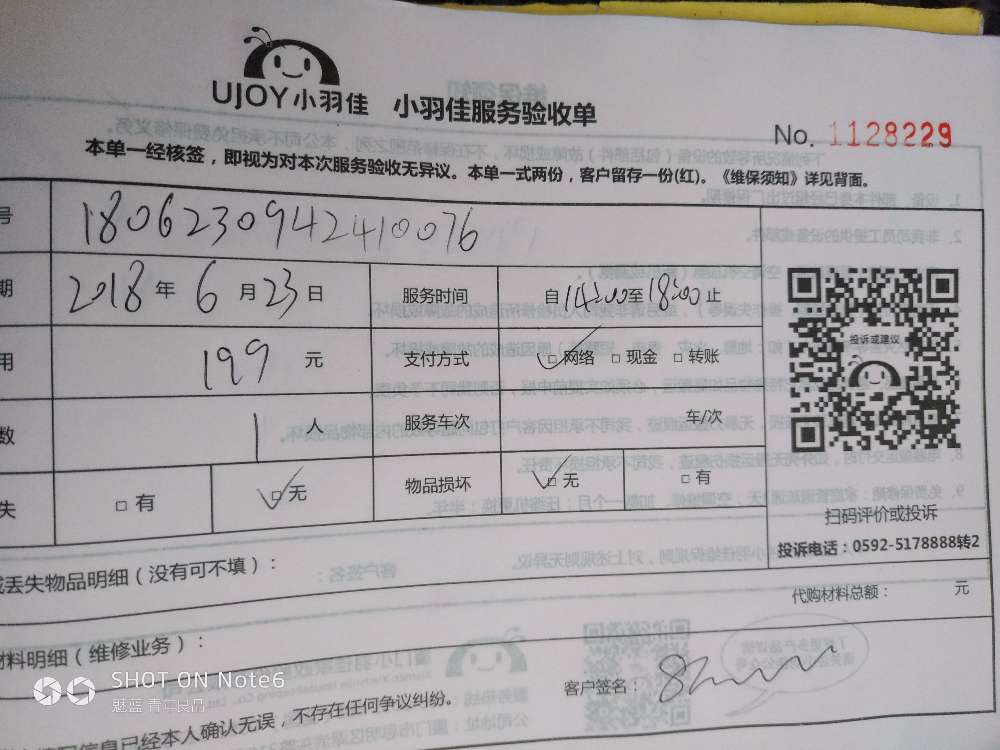 UJOY小羽佳 小羽佳服务验收单
No. 1128229
本单一经核签，即视为对本次服务验收无异议。本单一式两份，客户留存一份(红)。《维保须知》详见背面。
号 1806230942410076
期 2018年6月23日 服务时间 自14:00至18:00止
用 199元 支付方式 □网络 □现金 □转账
数 1人 服务车次 车/次
失 □有 □无 物品损坏 □无 □有
投诉或建议
扫码评价或投诉
投诉电话：0592-5178888转2
丢失物品明细（没有可不填）：
代购材料总额： 元
材料明细（维修业务）：
客户签名：
信息已经本人确认无误，不存在任何争议纠纷。
SHOT ON Note6
魅蓝 青年良品